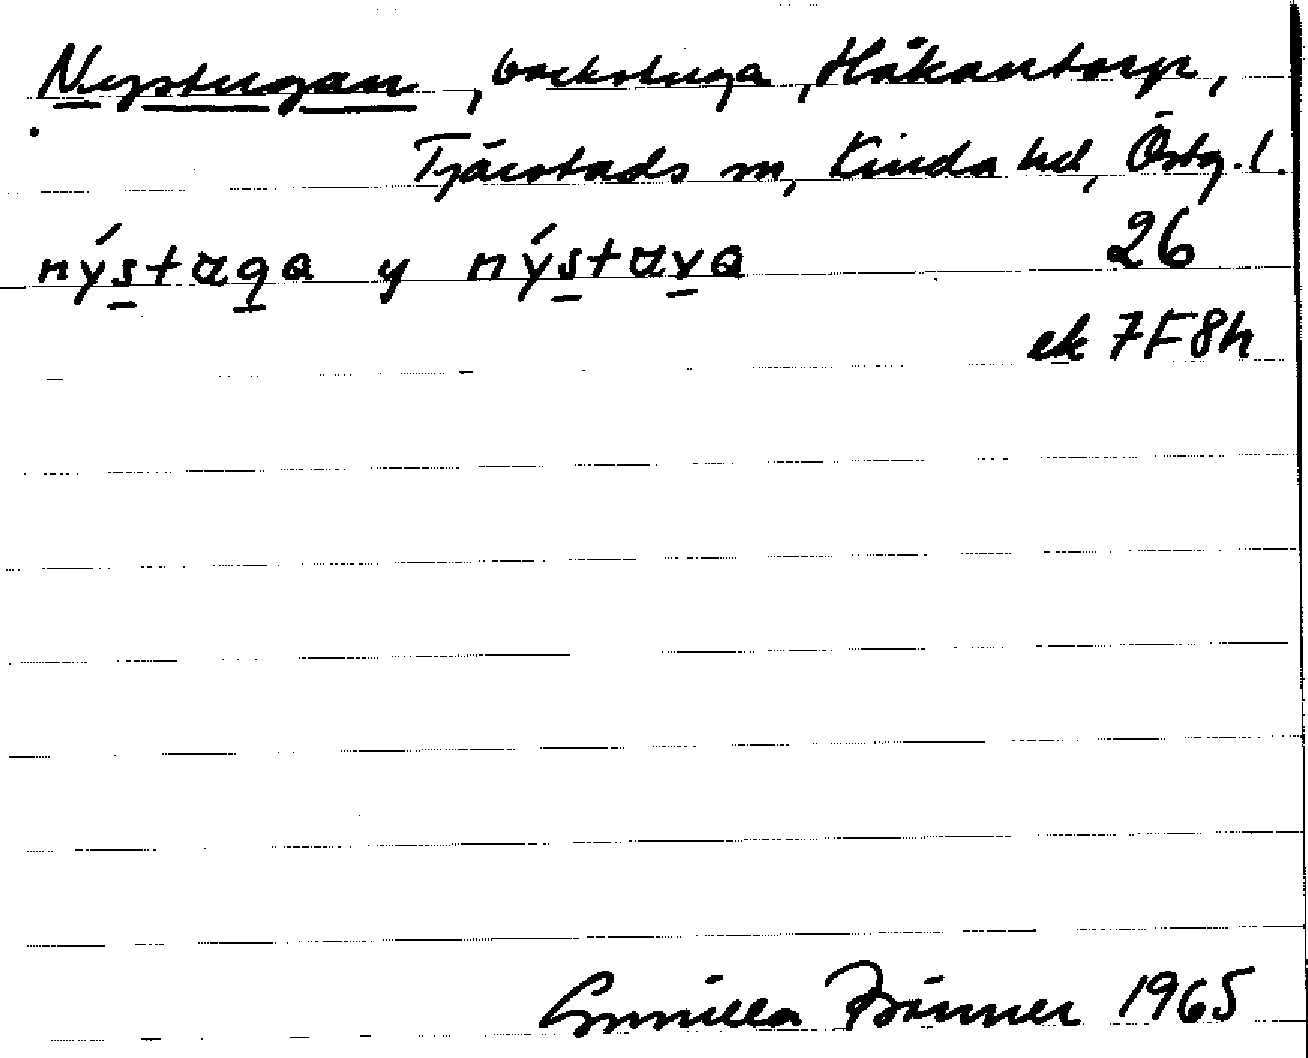 Nystugan, backstuga, Håkantorp,
Tjärstads sn, Kinda hd, Östg. l.
nýstaga y nýstava 26
ek 7F8h
Gunilla 1965